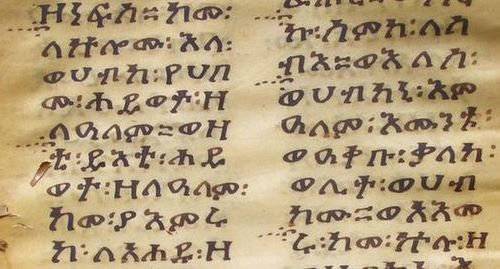 ዘነፍስ። ከመ፡
ለኵሎሙ፡ እለ፡
ወሀብከ፡ የሀበ
ሙ፡ ሕይወተ፡ ዘ
ለዓለም። ወዛ
ቲ፡ ይእቲ፡ ሕይ
ወት፡ ዘለዓለም፡
ከመ፡ ያእምሩ
ከ፡ ለአሐዱ፡ ዘ
ኩ፡ ስምከ፡ ለሰ
ብእ። ወእለሰ፡
ወሀብከኒ፡ እም
ዓለም፡ እሙንቱ፡
ወዓቀቡ፡ ቃለከ፡
ወሊተ፡ ወሀብ
ከሙ። ወአእመ
ሩ፡ ከመ፡ ኵሉ፡ ዘ